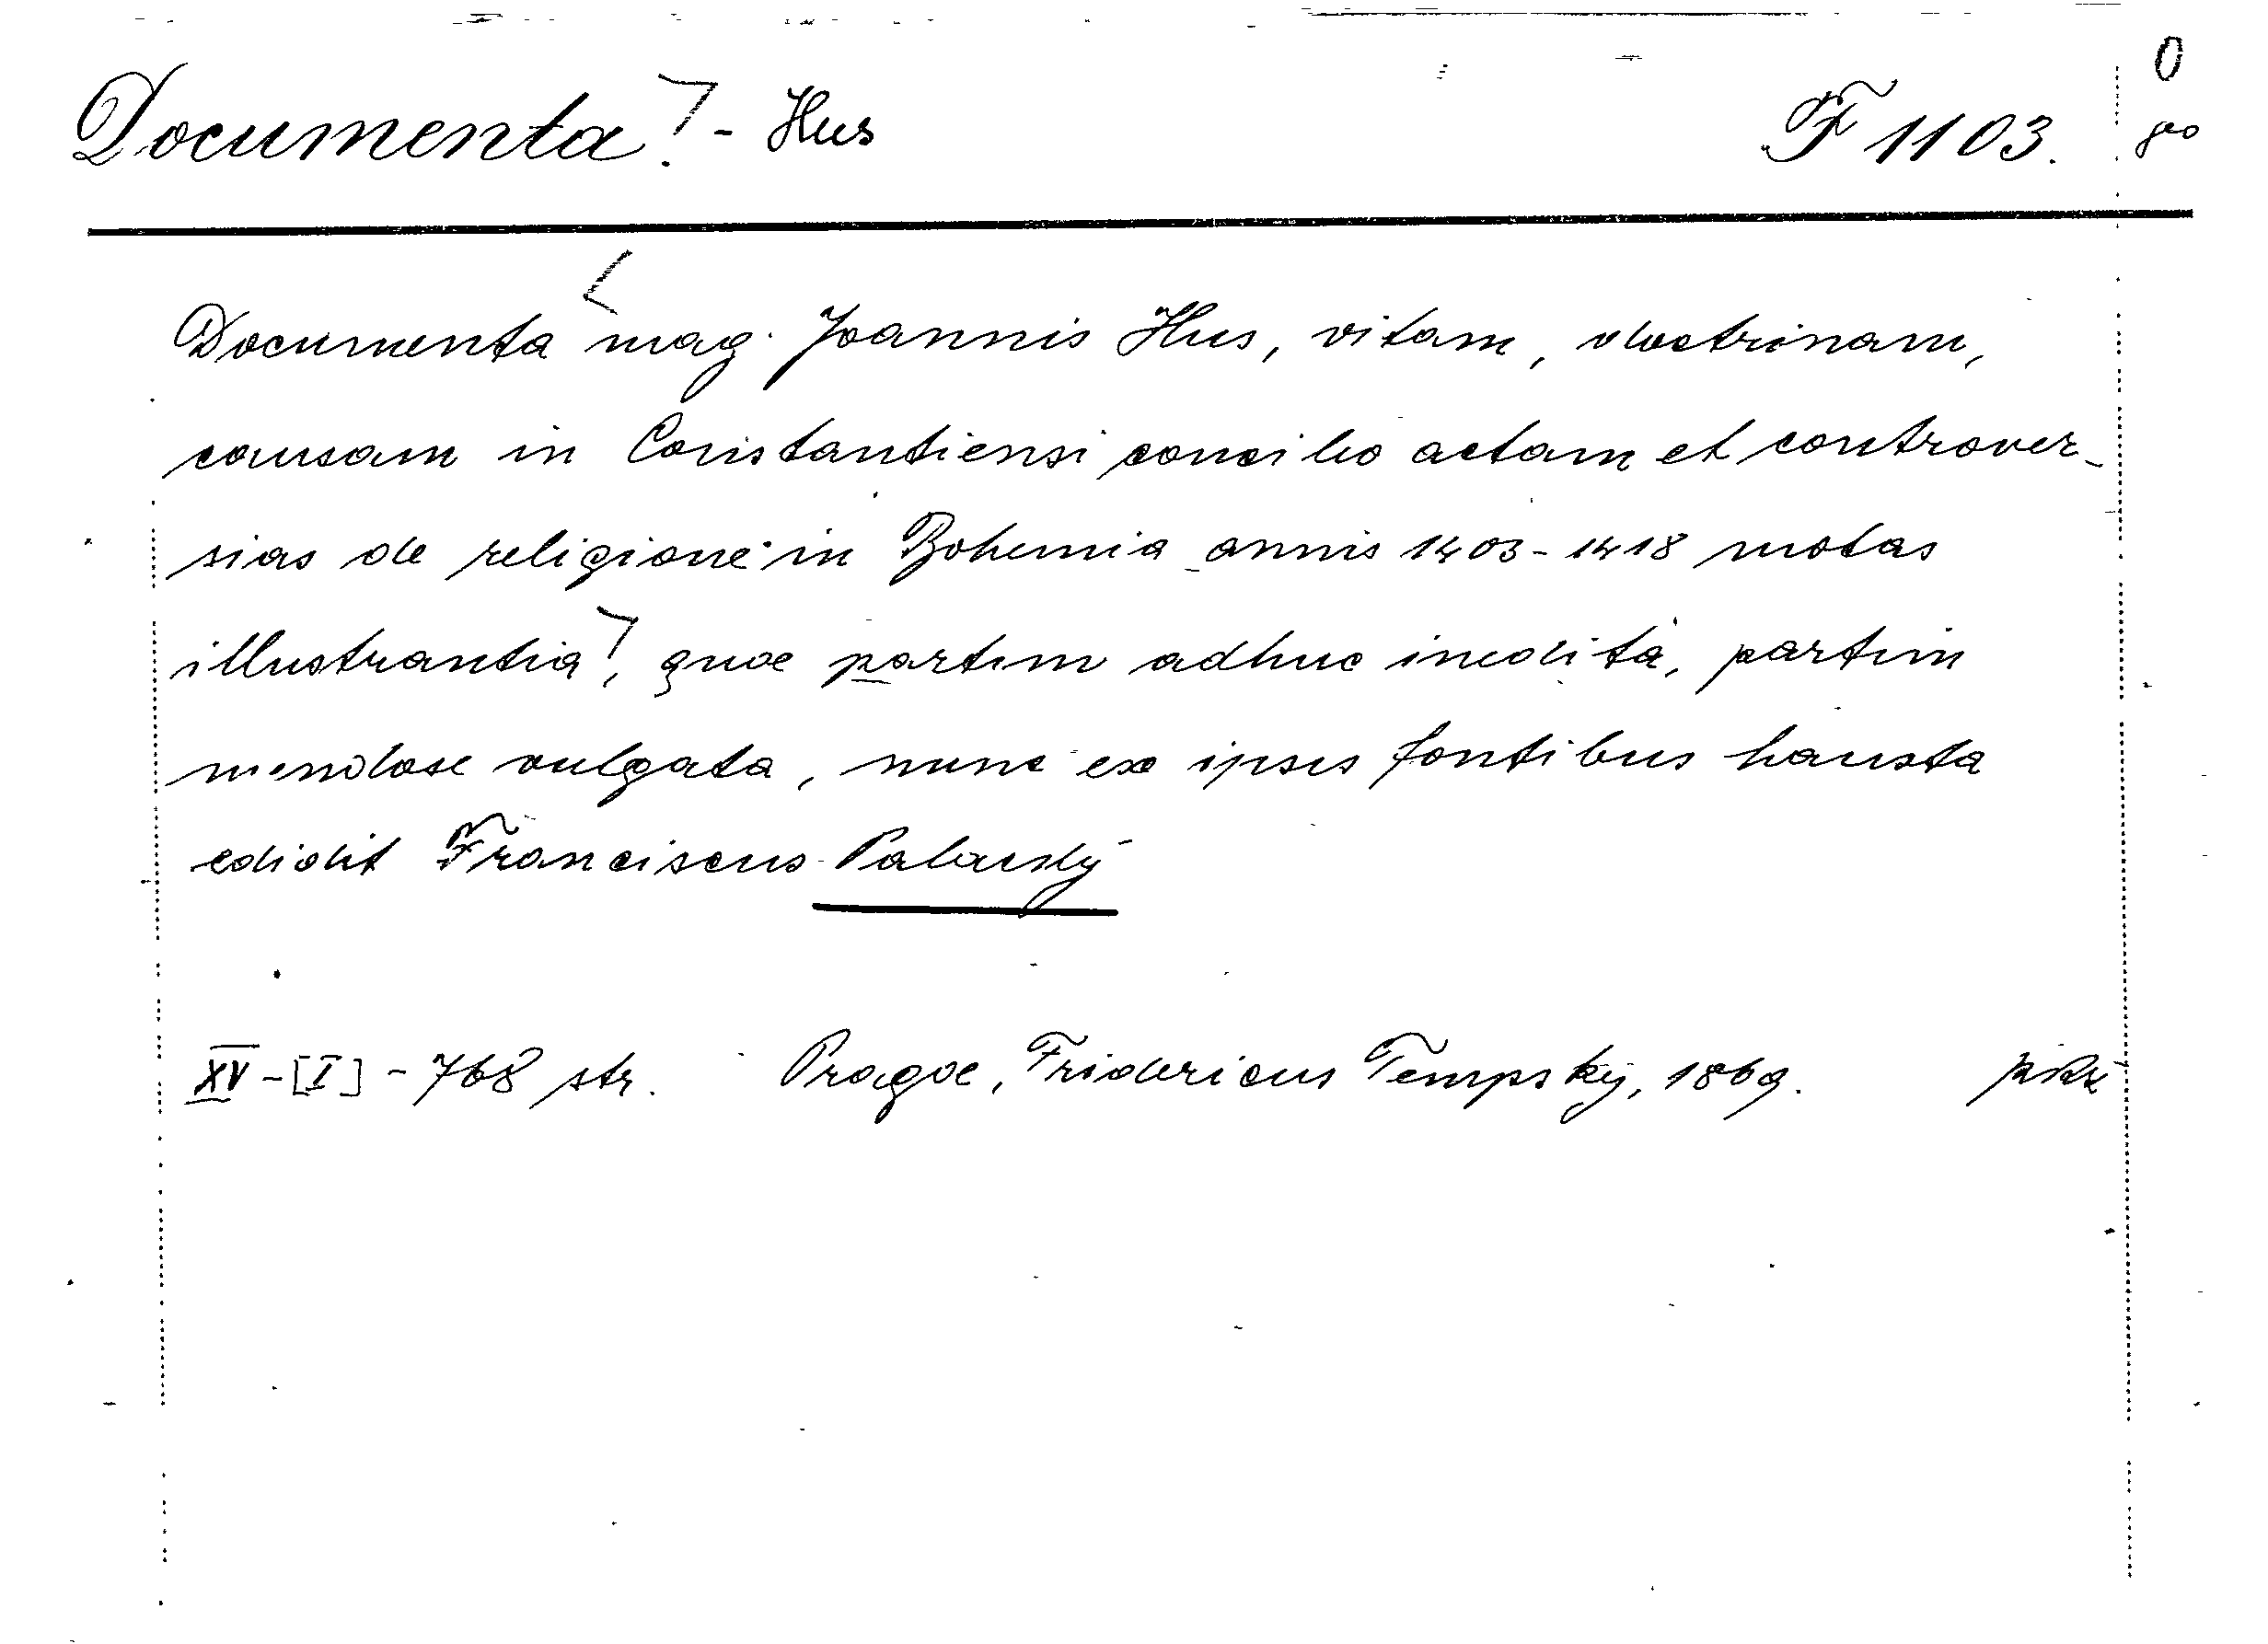 Documenta. - Hus F 1103.
Documenta mag. Joannis Hus, vitam, doctrinam,
causam in Constantiensi concilio actam et controver-
sias de religione in Bohemia annis 1403-1418 motas
illustrantia, quae partim adhuc inedita, partim
mendose vulgata, nunc ex ipsis fontibus hausta
edidit Franciscus Palacký
XV-[I]-768 str. Pragae, Fridericus Tempský, 1869.